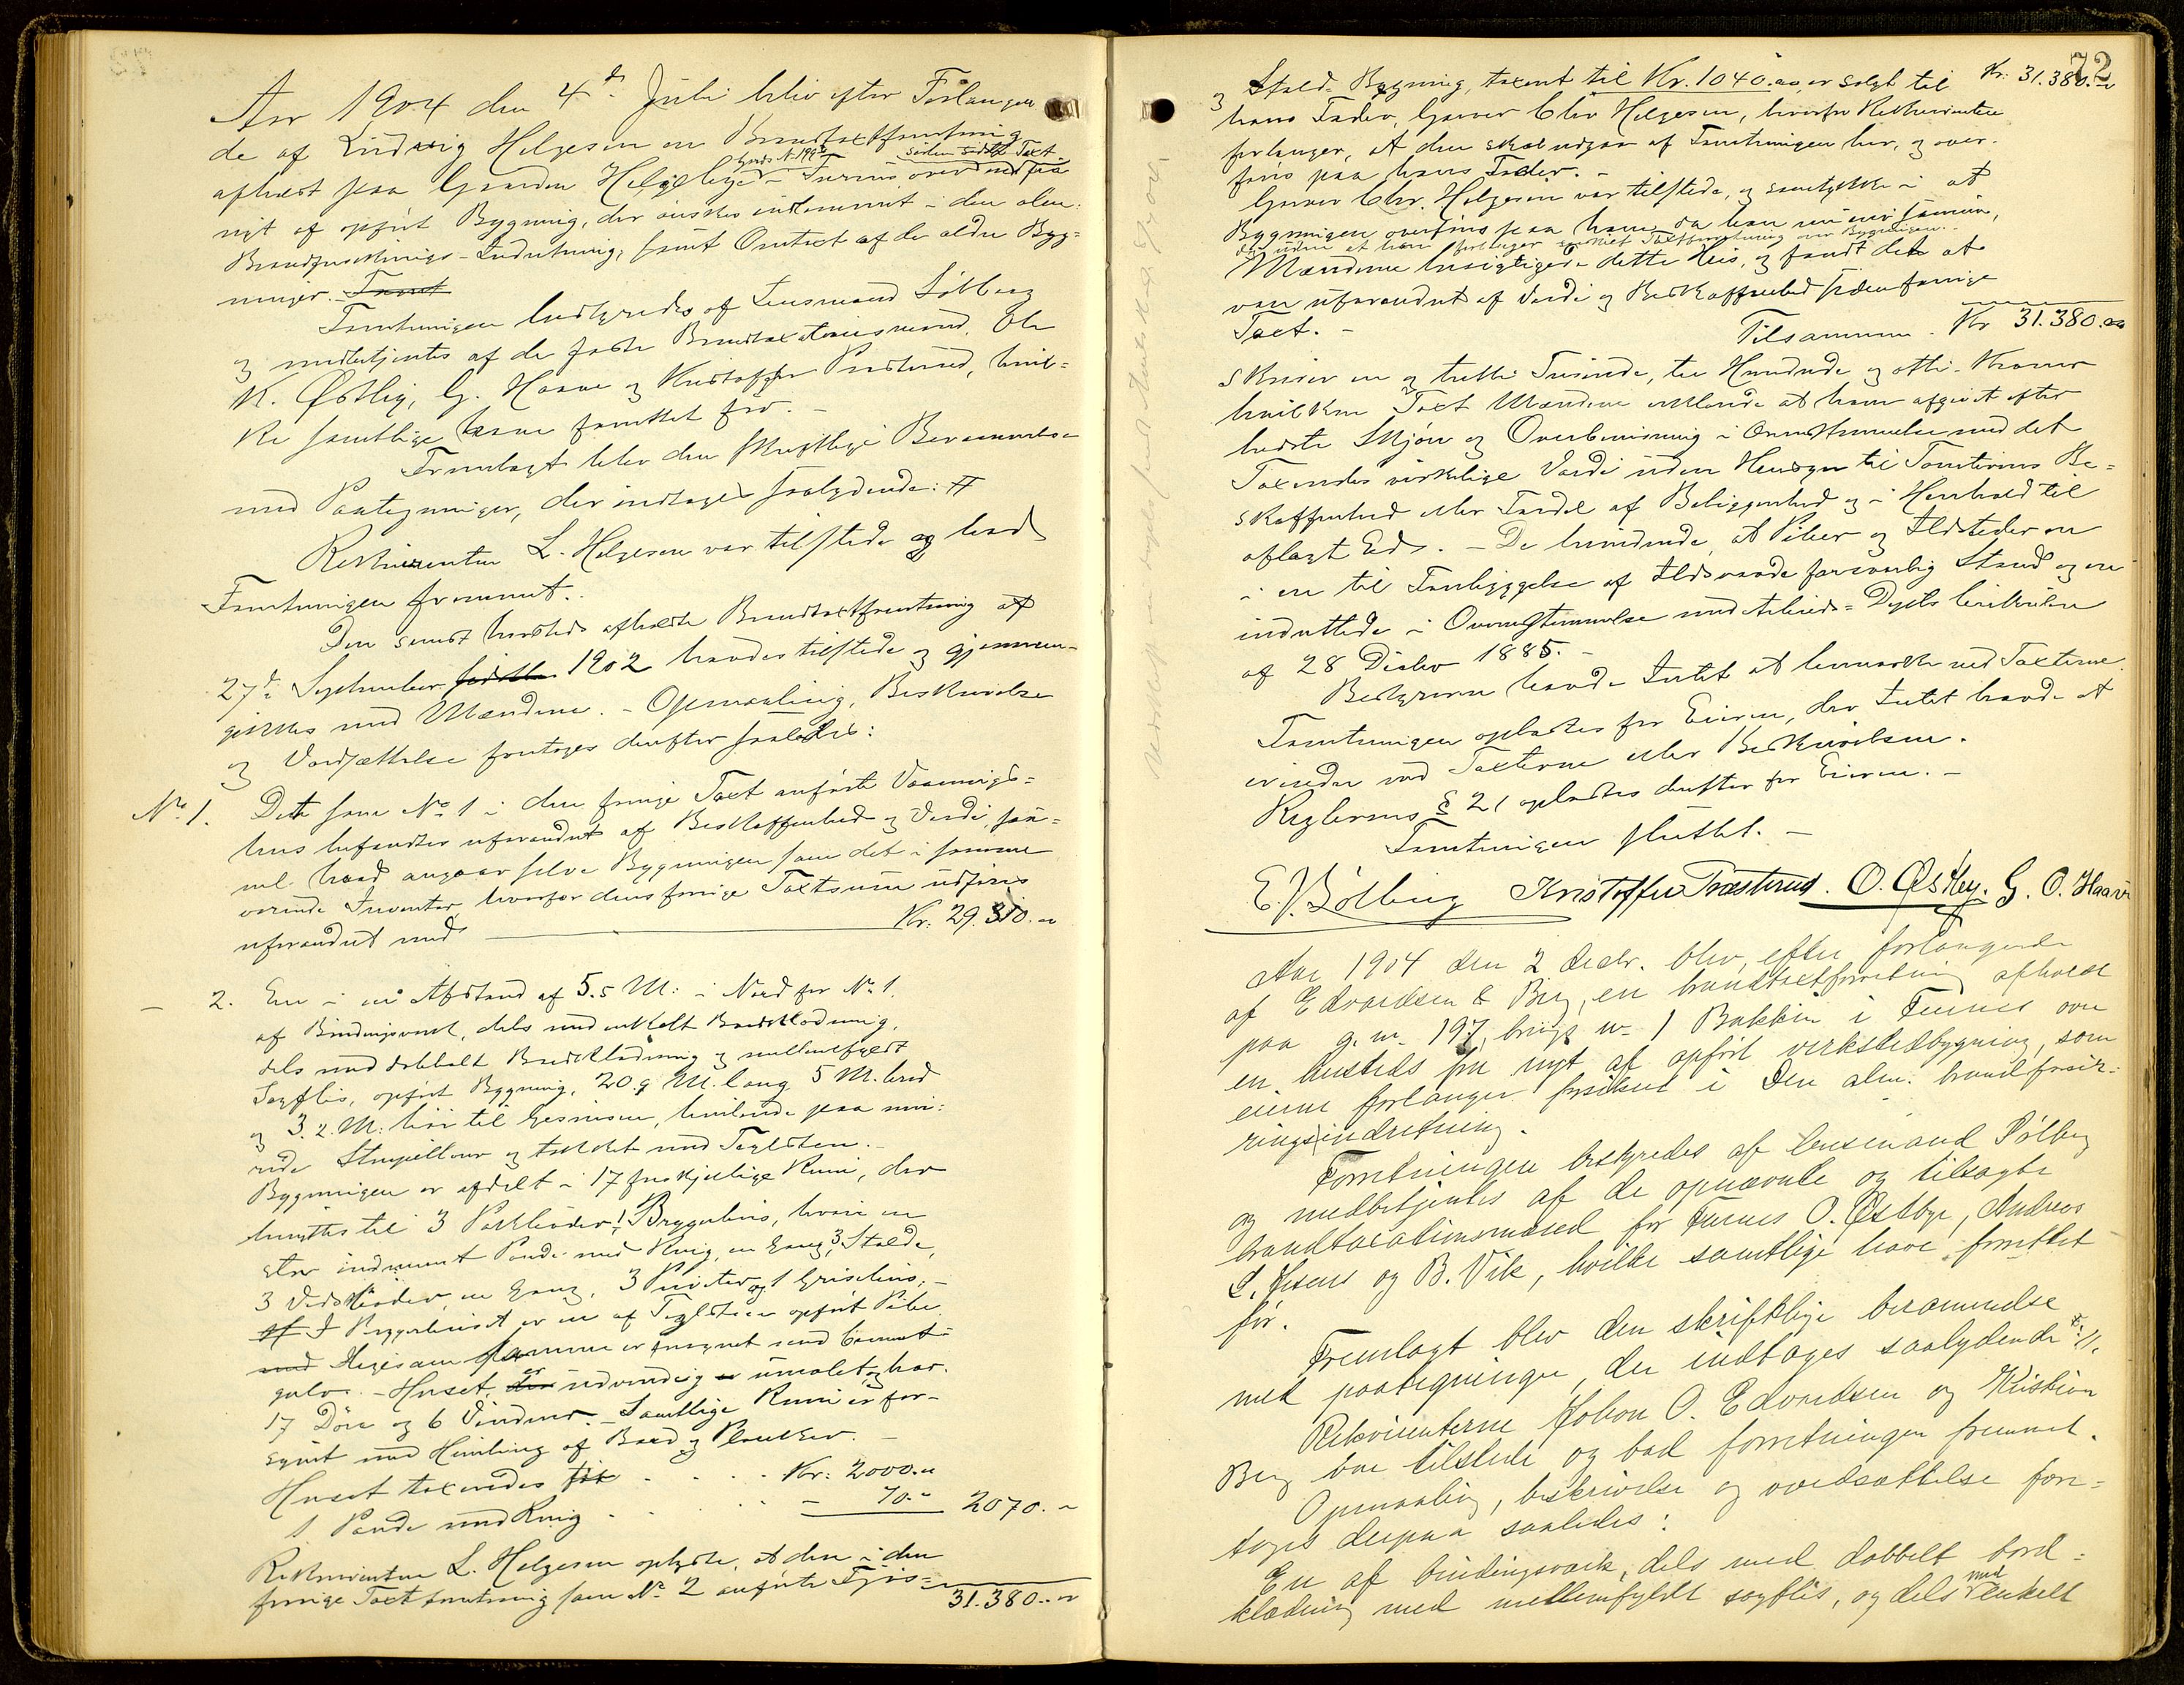 Aar 1904 den 4de Juli blev efter Forlangen
de af Ludwig Helgesen en Brandtaxtforretning
afholdt paa Gaarden Helgebye i Furnes over en
Gards N. 199 siden sidste Taxt
nyt af opført Bygning, der ønskes indlemmet i den alm:
Brandforsikrings-Indretning, samt Omtaxt af de ældre Byg=
ninger.
Forretningen bestyredes af Lensmand Sølberg
og medbetjentes af de faste Brandtaxationsmænd, Ole
K. Østby, G. Haave og Kristoffer Præsterud, hvil=
ke samtlige have forrettet før. –
Fremlagt blev den skriftlige Berammelse
med Paategninger, der indtages saalydende: #
Rekvirenten L. Helgesen var tilstede og bad
Forretningen fremmet.
Den senest herstæds afholdte Brandtaxtforretning af
27de September 1902 havdes tilstede og gjennem-
gikkes med Mændene. – Opmaaling, Beskrivelse
og Værdsættelse foretoges derefter saaledes:
No. 1. Det som No 1 i den forrige Taxt anførte Vaanings=
hus befandtes uforandret af Beskaffenhed og Værdi, saa=
vel hvad angaar selve Bygningen som det i samme
værende Inventar, hvorfor dens forrige Taxtsum udføres
uforandret med Kr. 29.310.„
— 2. En i en Afstand af 5.5 M: i Nord for No 1.
af Bindingsværk, dels med enkelt Bordklædning,
dels med dobbelt Bordklædning og mellemfyldt
Sagflis, opført Bygning, 20.9 M. lang 5 M. bred
og 3.2 M: høi til Gesimsen, hvilende paa mu:
rede Stenpillarer og tækket med Teglsten. –
Bygningen er afdelt i 17 forskjellige Rum, der
benyttes til 3 Pakboder, 1 Bryggerhus, hvori en
stor indmuret Pande med Ring, en Gang, 3 Stalde,
3 Vedskboder, en Gang, 3 Priveter og 1 Grisehus. –
I Bryggerhuset er en af Teglsten opført Pibe.
Ligesom samme er forsynet med Cement-
gulv. – Huset er udvendig umalet, har
17 Døre og 6 Vinduer. – Samtlige Rum er for-
synet med Himling af Bord og Planker. –
Huset taxeredes til . . . . Kr: 2000.„
1 Pande med Ring . . . – 70.„ 2070.„
Rekvirenten L. Helgesen oplyste, at den i den
forrige Taxtforretning som No 2 anførte Fjøs=
31.380.„
72
Kr: 31.380.„
og Stald-Bygning, taxeret til Kr. 1040.00, er solgt til
hans Fader, Garver Chr Helgesen, hvorfor Rekvirenten
forlanger, at den skal udgaa af Forretningen her, og over-
føres paa hans Fader. –
Garver Chr. Helgesen var tilstede, og samtykkede i at
Bygningen overføres paa ham, da han nu eier samme,
og uden at han forlanger særskilt Taxtforretning over Bygningen.
Mændene besigtigede dette Hus, og fandt det at
være uforandret af Værdi og Beskaffenhed siden forrige
Taxt. – Tilsammen. Kr 31.380.00
skriver en og tretti Tusinde, tre Hundrede og otti Kroner
hvilken Taxt Mændene erklærede at have afgivet efter
bedste Skjøn og Overbevisning i Overstemmelse med det
Taxeredes virkelige Værdi uden Hensyn til Tomternes Be=
skaffenhed eller Fordel af Beliggenhed og i Henhold til
aflagt Ed. – De bemærkede, at Piber og Ildsteder er
i en til Forebyggelse af Ildsvaade forsvarlig Stand og er
indrettede i Overensstemmelse med Arbeids-Depts Cirkulære
af 28 Decbr 1885. –
Bestyreren havde Intet at bemærke ved Taxterne.
Forretningen oplæstes for Eieren, der Intet havde at
erindre ved Taxterne eller Beskrivelsen.
Reglernes § 21 oplæstes derefter for Eieren. –
Forretningen sluttet. –
E. J. Sølberg Kristoffer Præsterud. O. Østby. G. O. Haave
Aar 1904 den 2 decbr. blev, efter forlangende
af Edvardsen & Berg, en brandtaxtforretning afholdt
paa g. nr. 197, brugs nr 1 Bakken i Furnes over
en husteds fra nyt af opført verkstedbygning, som
eierne forlanger forsikret i Den alm. brandforsik-
ringsindretning.
Forretningen bestyredes af lensmand Sølberg
og medbetjentes af de opnævnte og tilsagte
brandtaxationsmænd for Furnes O. Østbye, Andreas
L. Jesnes og B. Vik, hvilke samtlige have forrettet
før.
Fremlagt blev den skriftlige berammelse
med paategninger, der indtages saalydende #: //.
Rekvirenterne Johan O. Edvardsen og Kristian
Berg var tilstede og bad forretningen fremmet.
Opmaaling, beskrivelse og værdsættelse fore=
toges derpaa saaledes:
En af bindingsværk, dels med dobbelt bord=
klædning med mellemfyldt sagflis, og dels med enkelt